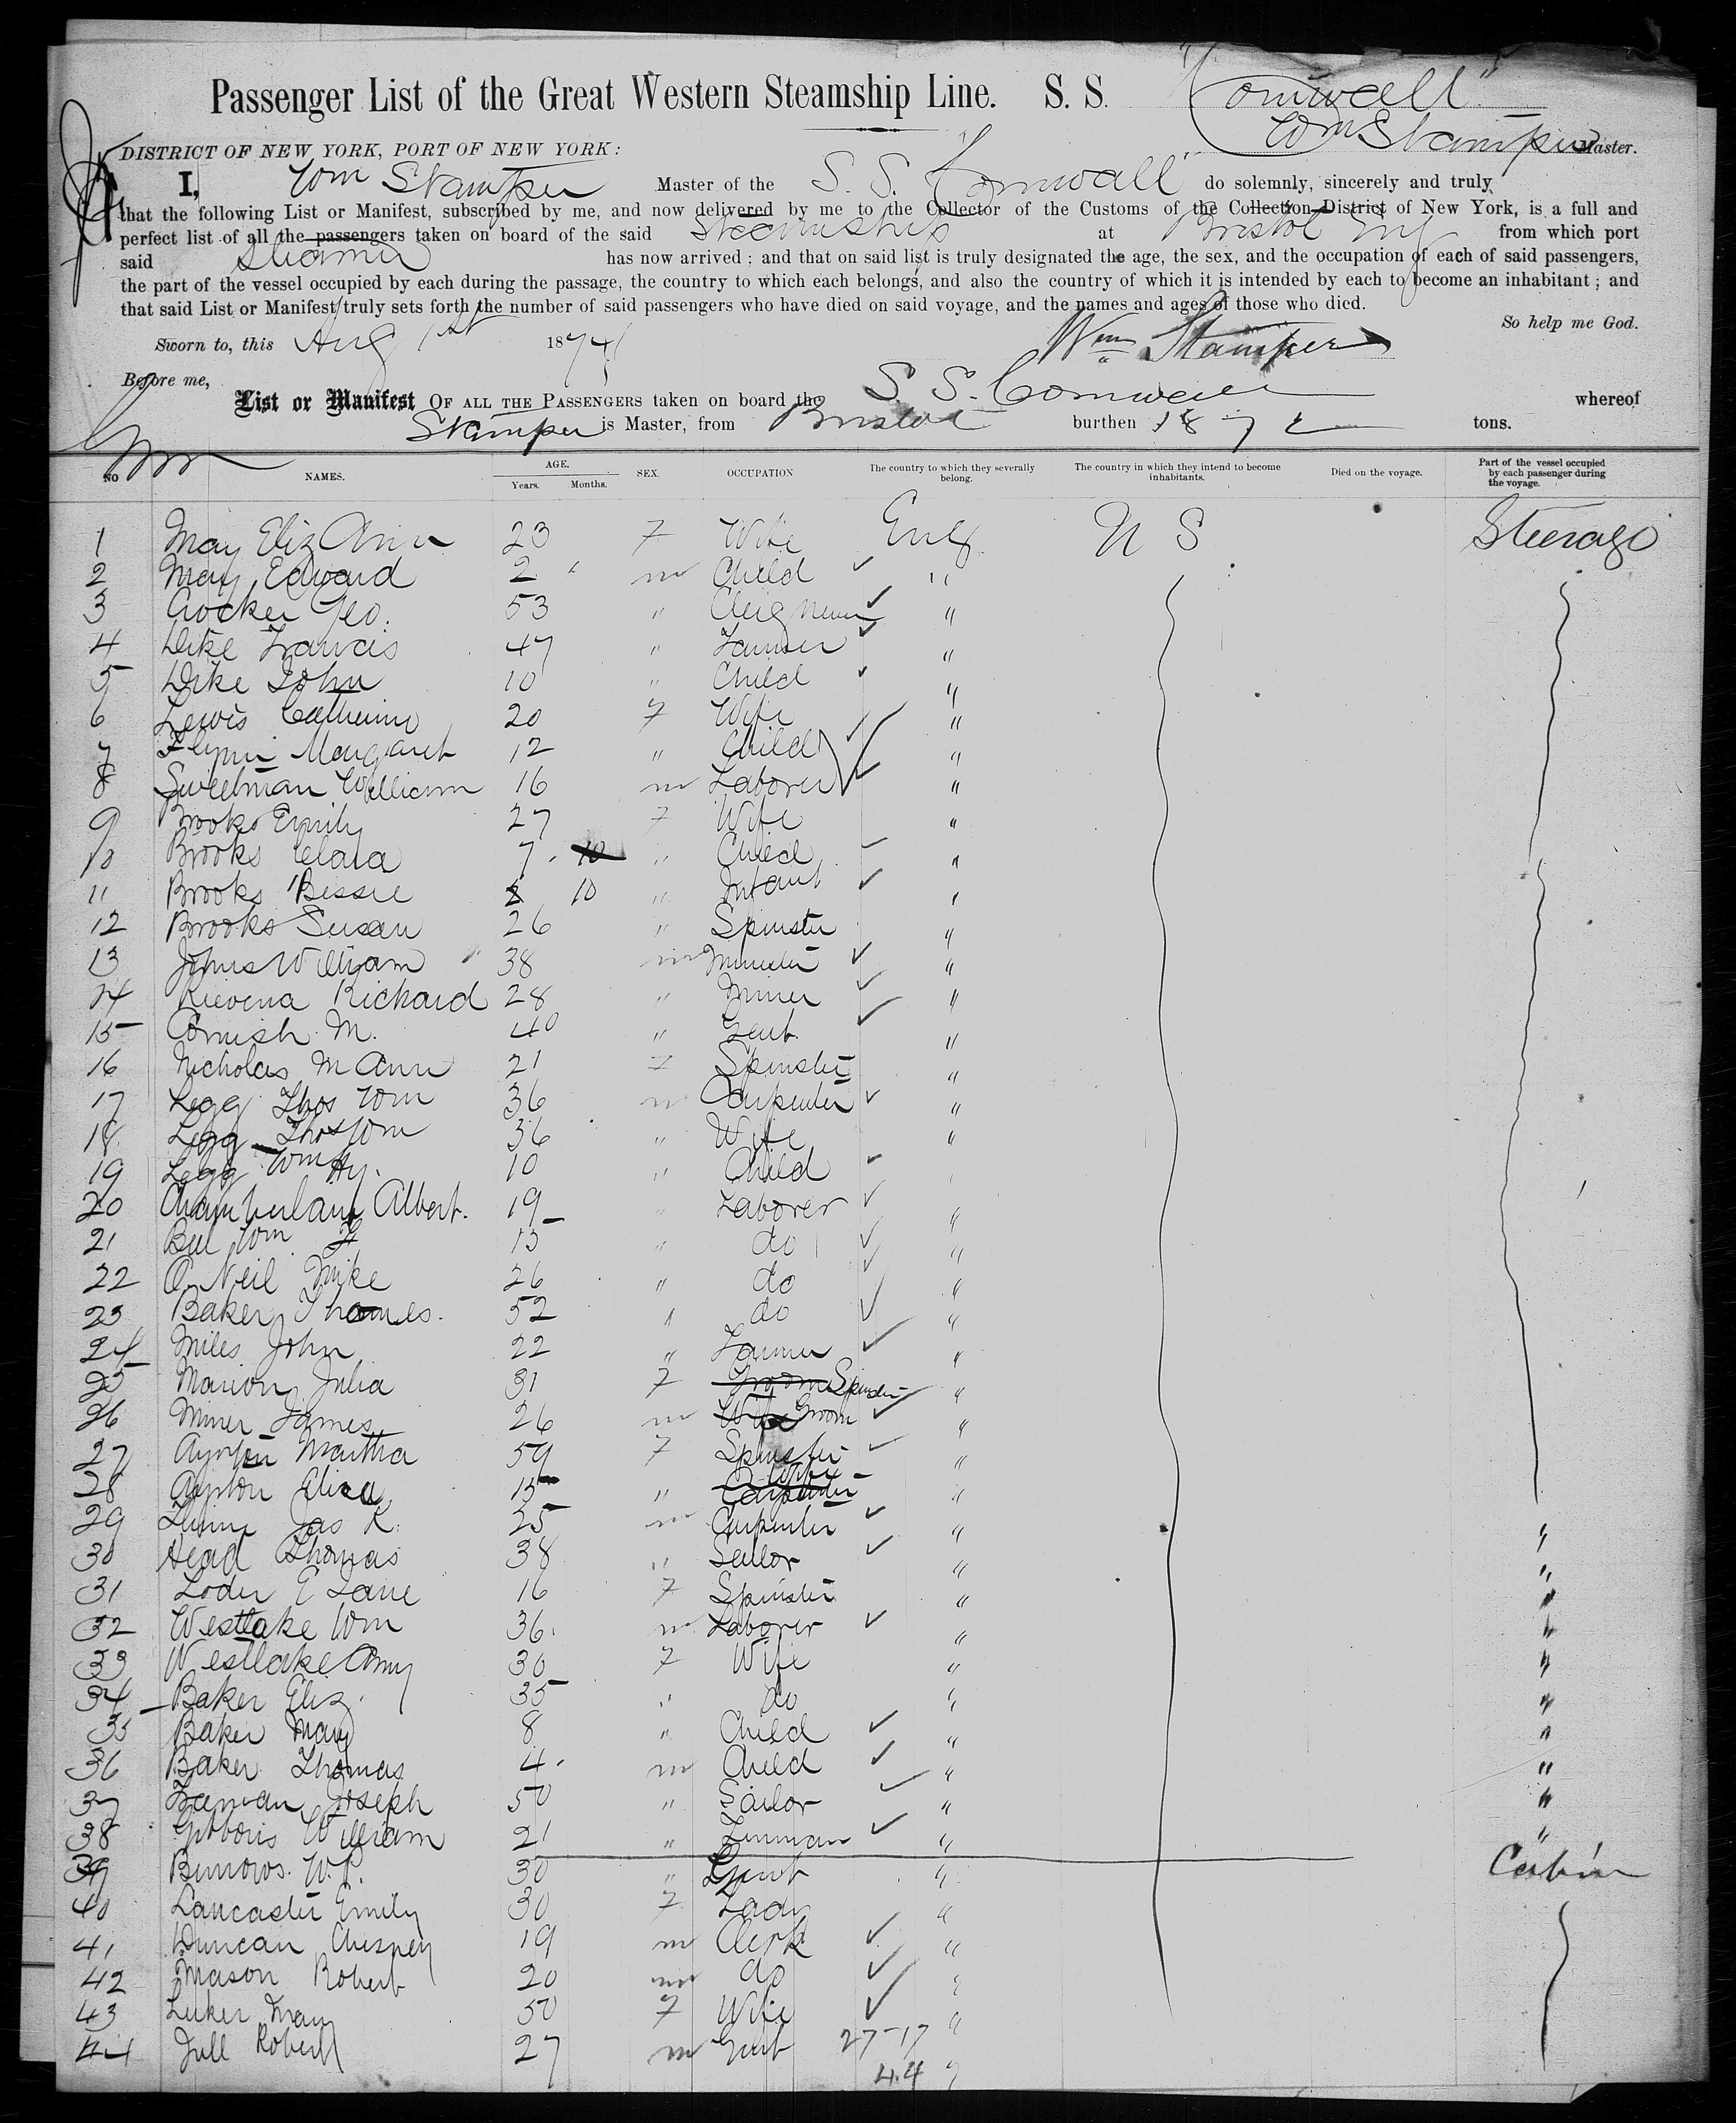 Passenger List of the Great Western Steamship Line. S. S. "Cornwall"
Wm Stamper Master.
DISTRICT OF NEW YORK, PORT OF NEW YORK:
I, Wm Stamper Master of the S. S. "Cornwall" do solemnly, sincerely and truly
that the following List or Manifest, subscribed by me, and now delivered by me to the Collector of the Customs of the Collection District of New York, is a full and
perfect list of all the passengers taken on board of the said Steamship at Bristol Eng from which port
said Steamer has now arrived; and that on said list is truly designated the age, the sex, and the occupation of each of said passengers,
the part of the vessel occupied by each during the passage, the country to which each belongs, and also the country of which it is intended by each to become an inhabitant; and
that said List or Manifest truly sets forth the number of said passengers who have died on said voyage, and the names and ages of those who died.
So help me God.
Sworn to, this Aug 1st 1874
Wm Stamper
Before me,
List or Manifest OF ALL THE PASSENGERS taken on board the S. S. Cornwall whereof
Stamper is Master, from Bristol burthen 1872 tons.
NO NAMES. AGE. Years. Months. SEX. OCCUPATION The country to which they severally belong. The country in which they intend to become inhabitants. Died on the voyage. Part of the vessel occupied by each passenger during the voyage.
1 May Eliz Ann 23 F Wife Eng U S Steerage
2 May Edward 2 m Child "
3 Crocker Geo. 53 " Clergyman "
4 Dike Francis 47 " Farmer "
5 Dike John 10 " Child "
6 Lewis Catherine 20 F Wife "
7 Flynn Margaret 12 " Child "
8 Sweetman William 16 m Laborer "
9 Brooks Emily 27 F Wife "
10 Brooks Clara 7 10 " Child "
11 Brooks Bessie 10 " Infant "
12 Brooks Susan 26 " Spinster "
13 Johns William 38 m Minister "
14 Richard 28 " Miner "
15 Cornish M. 40 " Gent. "
16 Nicholas M Ann 21 F Spinster "
17 Legg Thos Wm 36 m Carpenter "
18 Legg Thos Wm 36 " Wife "
19 Legg Wm Hy. 10 " Child
20 Chamberlain Albert. 19 " Laborer "
21 Wm 15 " do "
22 O Neil Mike 26 " do "
23 Baker Thomas. 52 " do "
24 Miles John 22 " Farmer "
25 Marion Julia 31 F Groom Spinster "
26 Miner James 26 m Wife Groom "
27 Martha 59 F Spinster "
28 Eliza 15 " Carpenter Wife "
29 Jas K. 25 m Carpenter " "
30 Head Thomas 38 " Sailor " "
31 Loder E Jane 16 F Spinster " "
32 Westlake Wm 36. m Laborer " "
33 Westlake Amy 30 F Wife " "
34 Baker Eliz. 35 " do " "
35 Baker Mary 8 " Child " "
36 Baker Thomas 4 m Child " "
37 Joseph 50 " Sailor " "
38 Gibbons William 21 " " "
39 Burrows. W. P. 30 " Gent " Cabin
40 Lancaster Emily 30 F Lady "
41 Duncan Chesney 19 m Clerk "
42 Mason Robert 20 m do "
43 Luker Mary 50 F Wife "
44 Jull Robert 27 m Gent 27-17 "
44